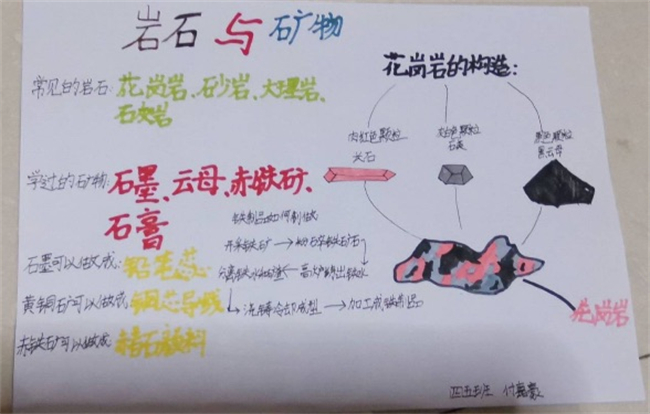 岩石与矿物
常见的岩石:花岗岩、石砂岩、大理岩、
石灰岩
学过的矿物:石墨、云母、赤铁矿、
石膏
石墨可以做成:铅笔芯
黄铜矿可以做成 铜芯导线
赤铁矿可以做成 赭石颜料
铁制品如何制做:
开采铁矿→粉碎铁矿石
分离铁水和渣←高炉炼出铁水
浇铸冷却成型→加工成铁制品
花岗岩的构造:
肉红色颗粒
长石
灰白色颗粒
石英
黑色颗粒
黑云母
花岗岩
四五班